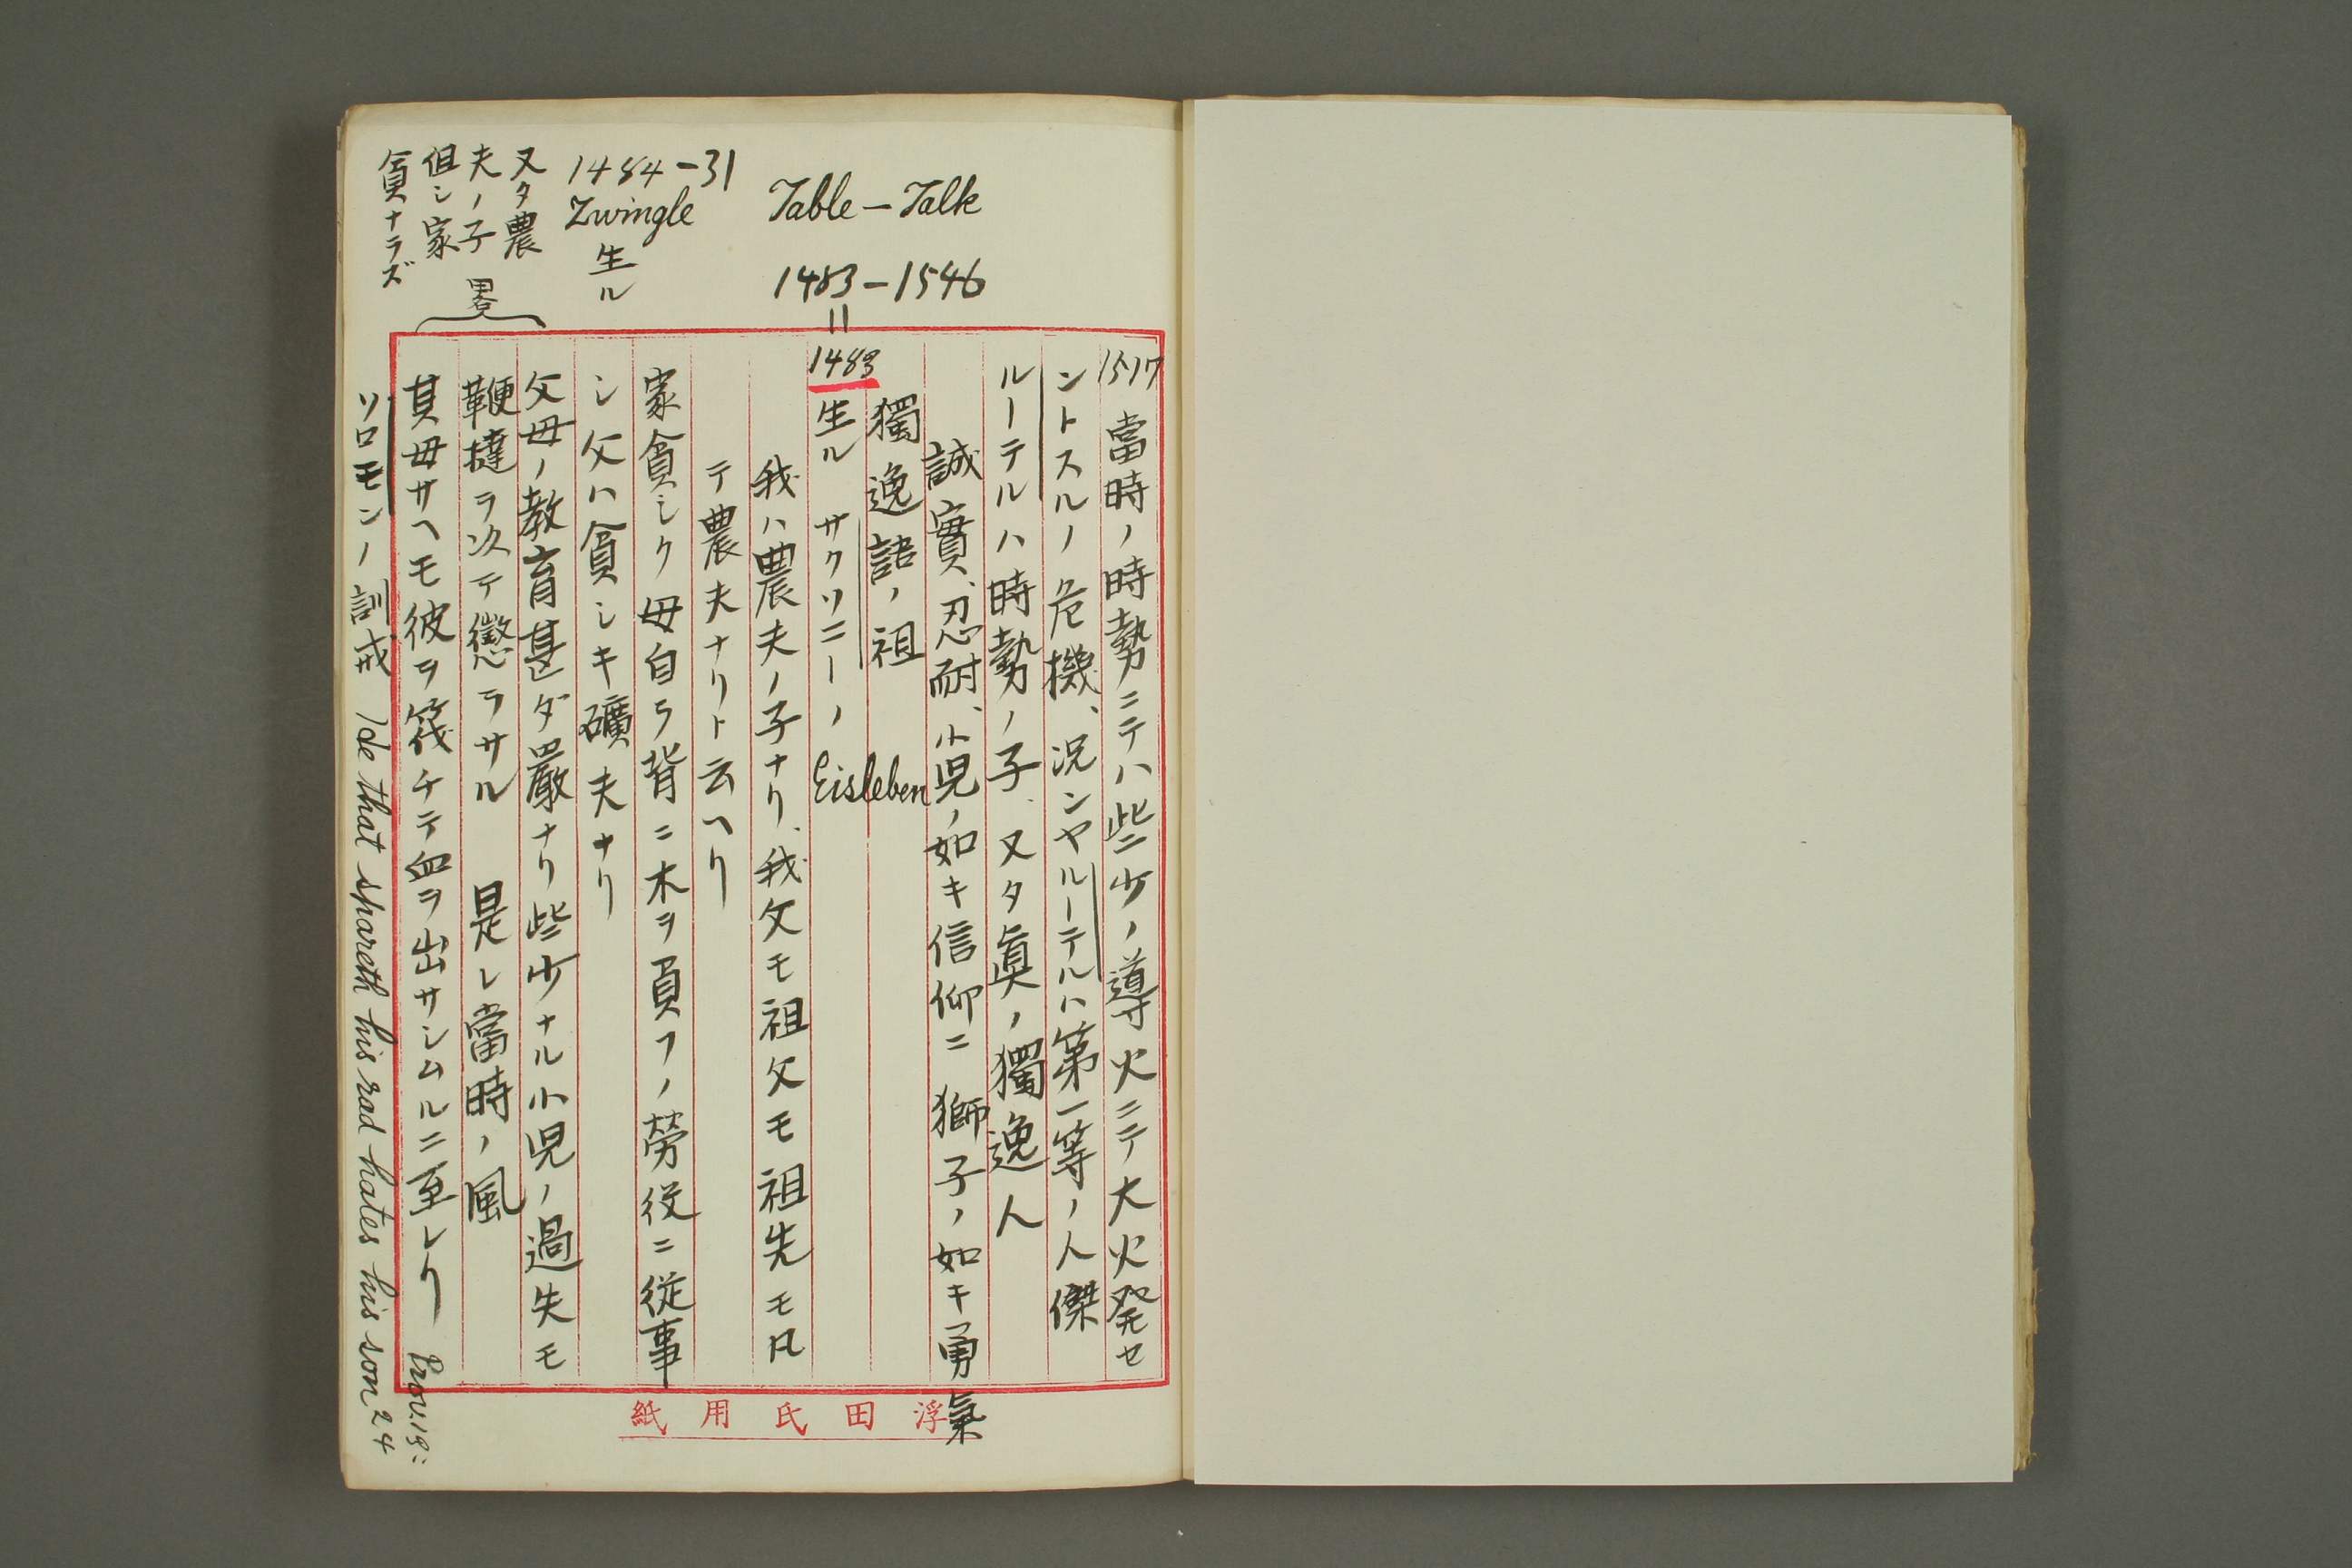 Table-Talk
1483-1546
1484-31
Zwingle
生ル
又タ農
夫ノ子
但シ家
貧ナラズ
畧
1517 當時ノ時勢ニテハ些少ノ導火ニテ大火発セ
ントスルノ危機、況ンヤルーテルハ第一等ノ人傑
ルーテルハ時勢ノ子、又タ眞ノ獨逸人
誠實、忍耐、小児ノ如キ信仰ニ獅子ノ如キ勇氣
獨逸語ノ祖
1483 生ル サクソニーノ Eisleben
我ハ農夫ノ子ナリ、我父モ祖父モ祖先モ凡
テ農夫ナリト云ヘリ
家貧シク母自ラ背ニ木ヲ負フノ勞役ニ従事
シ父ハ貧シキ礦夫ナリ
父母ノ教育甚ダ嚴ナリ些少ナル小児ノ過失モ
鞭撻ヲ次テ懲ラサル 是レ當時ノ風
其母サヘモ彼ヲ筏チテ血ヲ出サシムルニ至レリ
ソロモンノ訓戒 He that spareth his rod hates his son
Prov. 13:24
浮田氏用紙